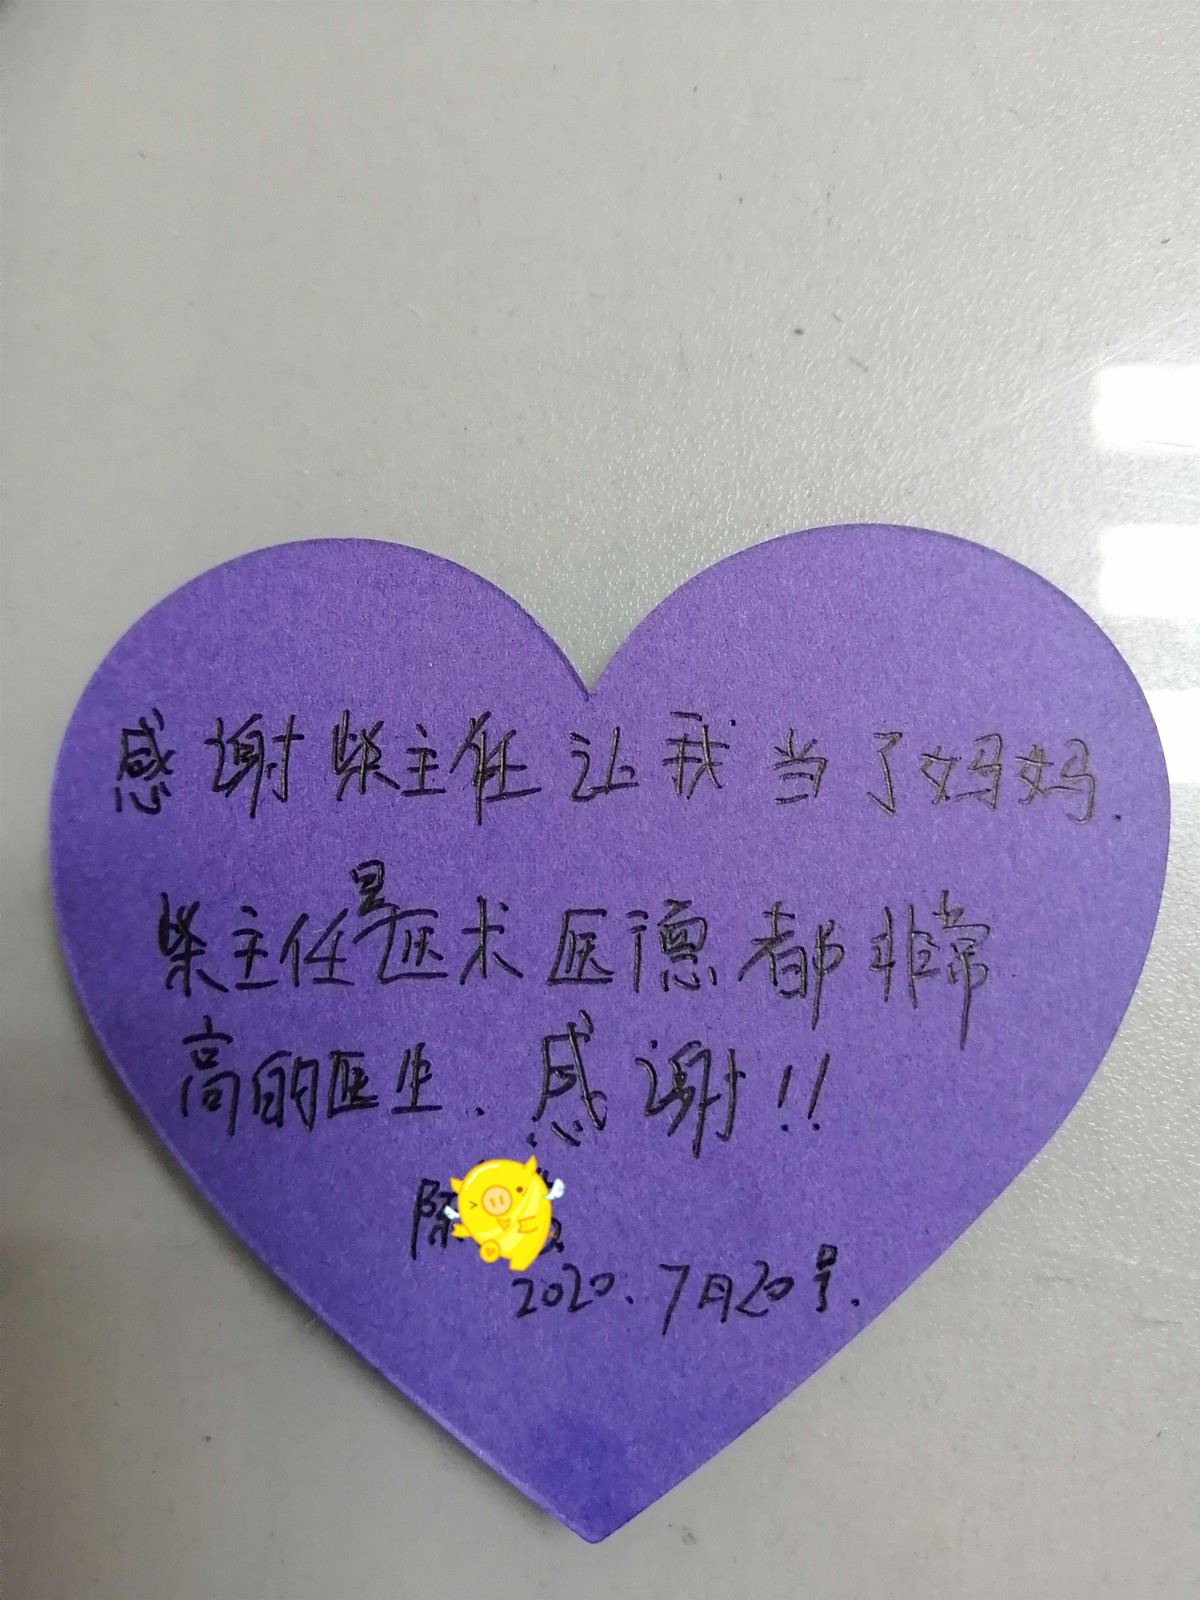 感谢柴主任让我当了妈妈.
柴主任是医术医德都非常
高的医生.感谢!!
陈
2020.7月20号.